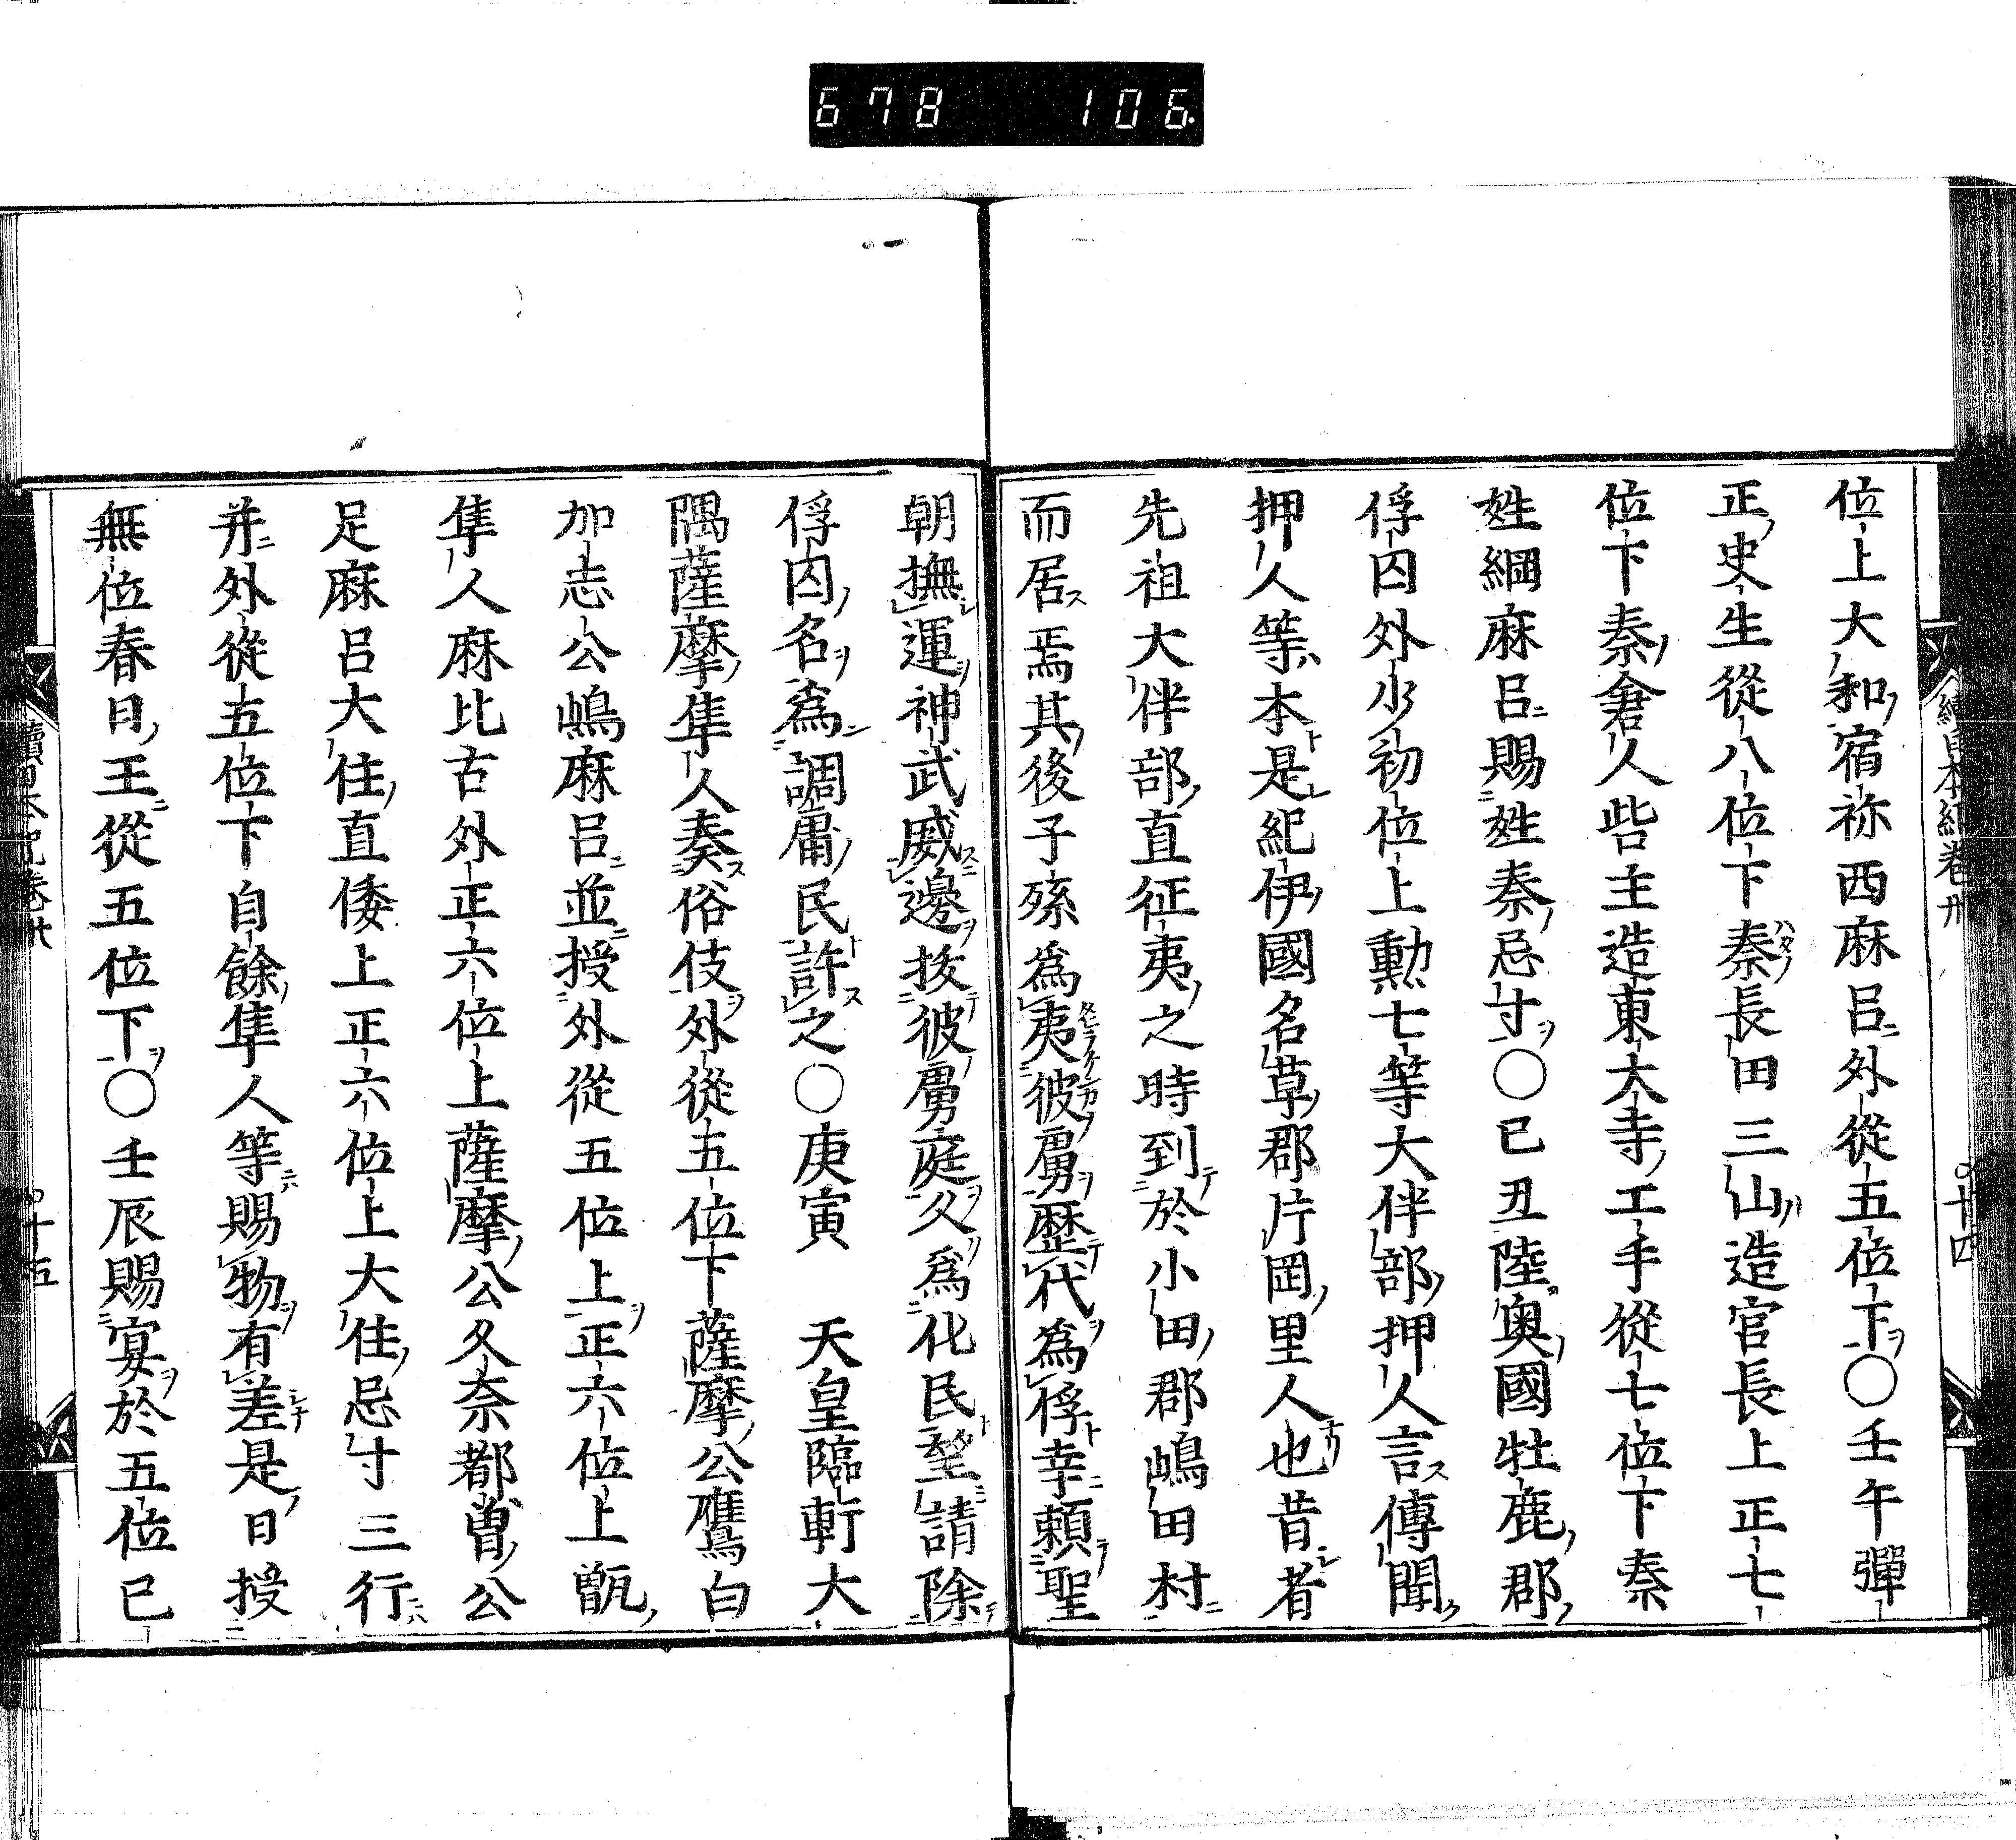 678 106
位上大和宿祢西麻呂外從五位下○壬午彈
正史生從八位下秦長田三山造官長上正七
位下秦倉人呰主造東大寺工手從七位下秦
姓綱麻呂賜姓秦忌寸○己丑陸奥國牡鹿郡
俘囚外少初位上勲七等大伴部押人言傳聞
押人等本是紀伊國名草郡片岡里人也昔者
先祖大伴部直征夷之時到於小田郡嶋田村
而居焉其後子孫爲夷彼虜歷代爲俘幸頼聖
朝撫運神武威邊拔彼虜庭久爲化民望請除
俘囚名爲調庸民許之○庚寅 天皇臨軒大
隅薩摩隼人奏俗伎外從五位下薩摩公鷹白
加志公嶋麻呂並授外從五位上正六位上甑
隼人麻比古外正六位上薩摩公久奈都曽公
足麻呂大住直倭上正六位上大住忌寸三行
并外從五位下自餘隼人等賜物有差是日授
無位春日王從五位下○壬辰賜宴於五位已